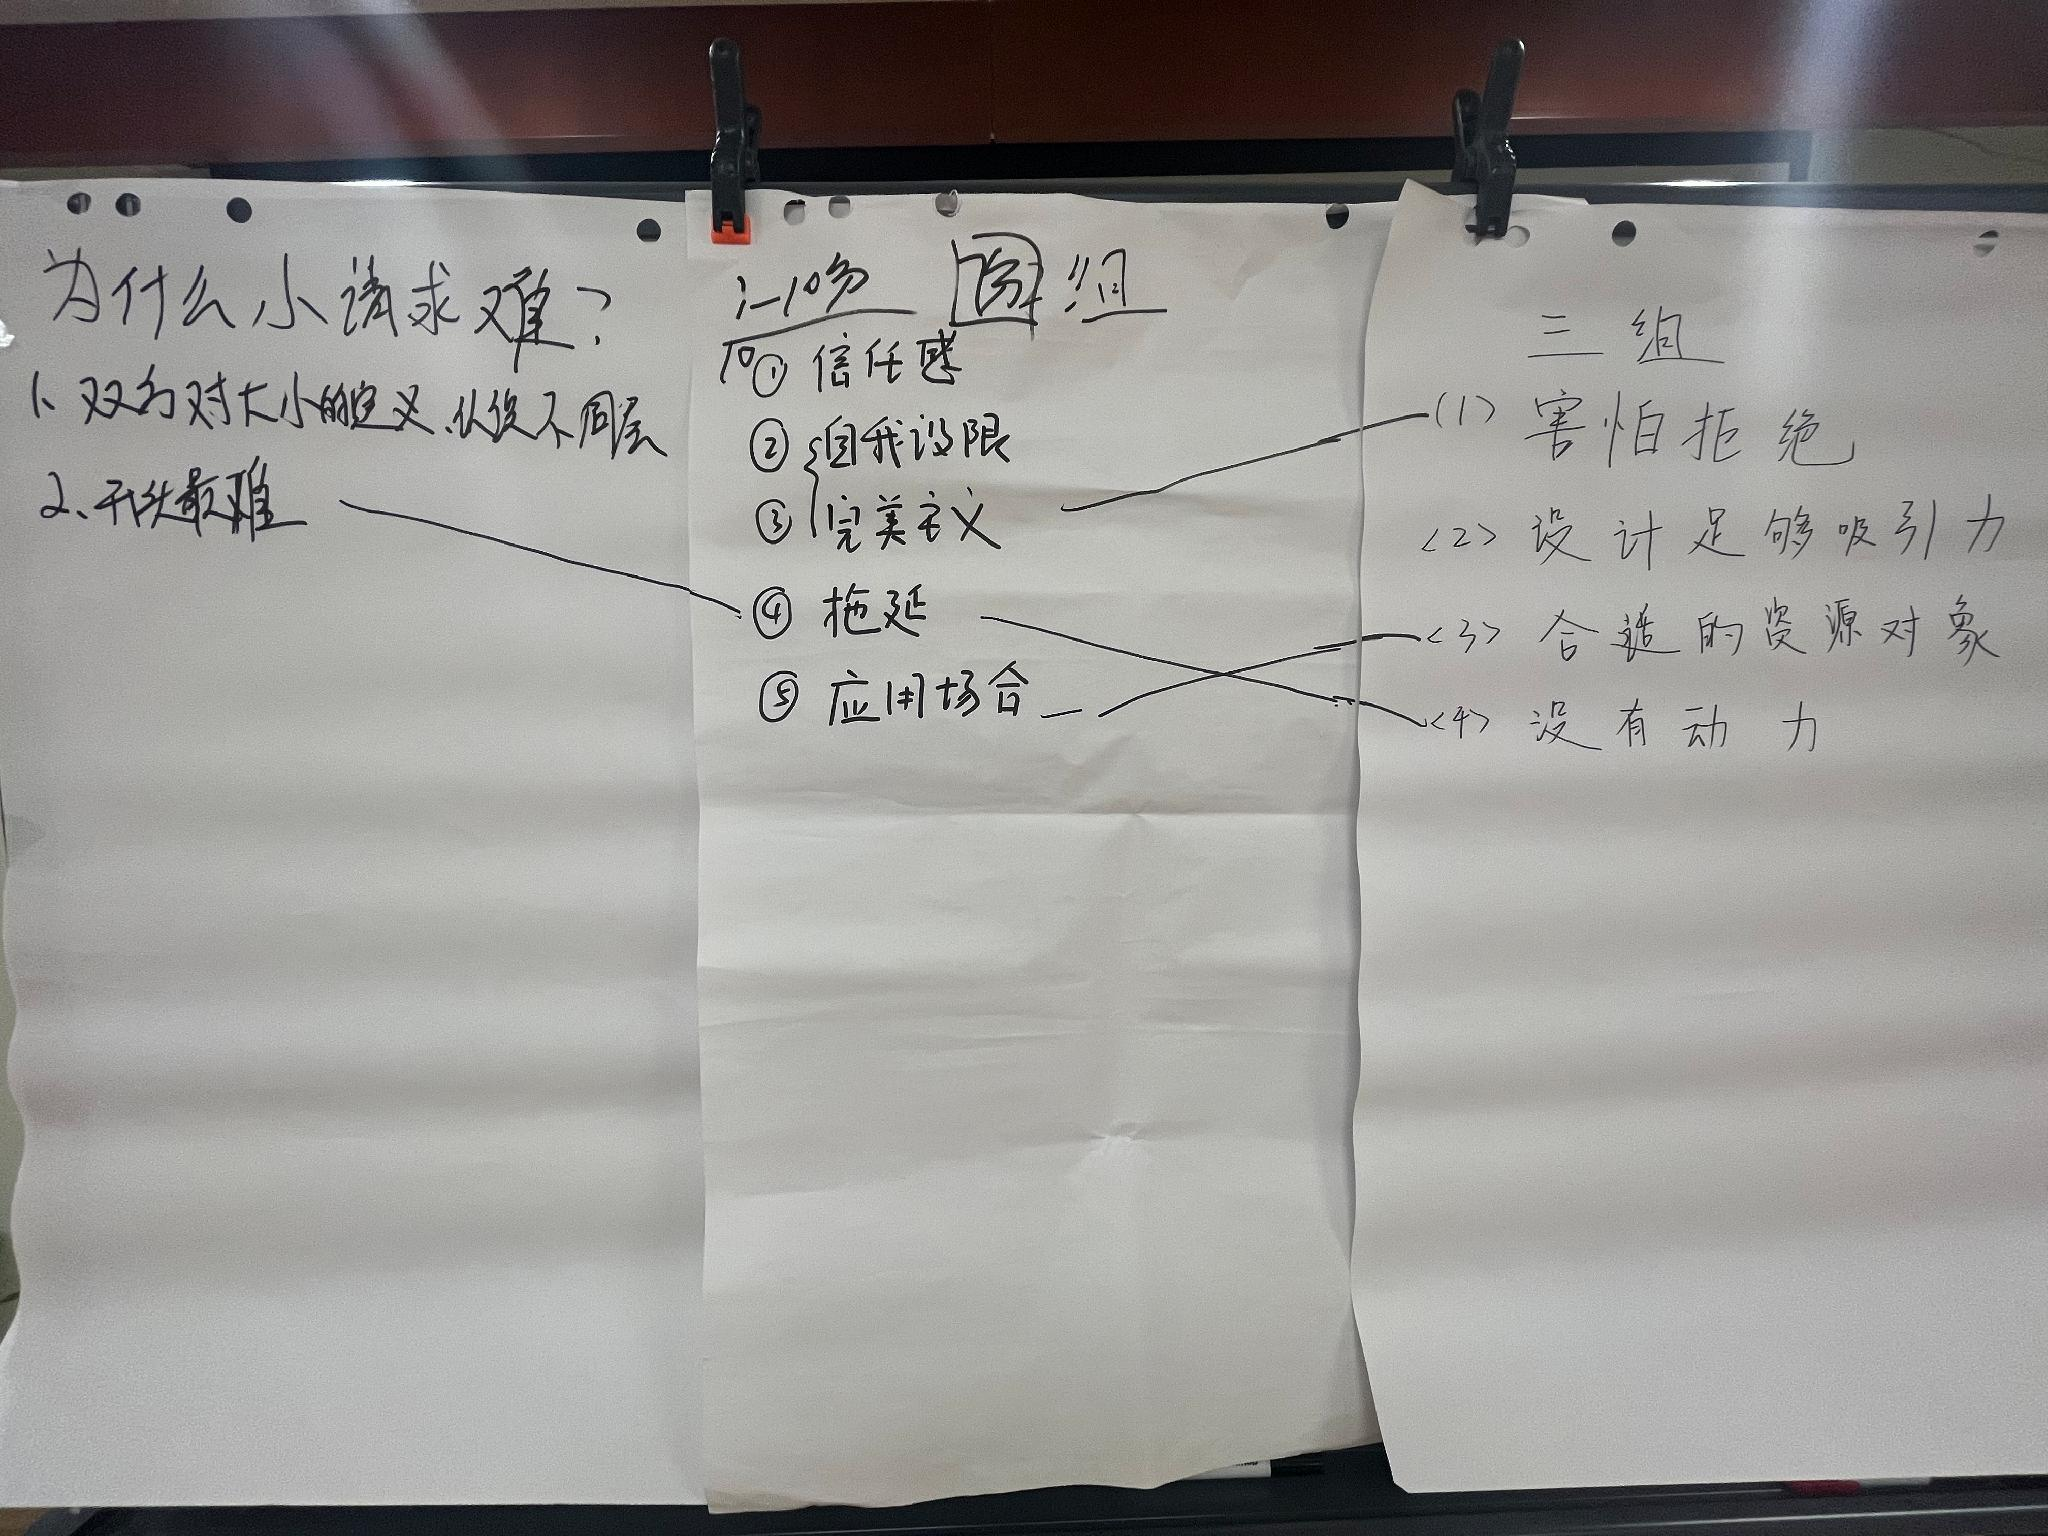 为什么小请求难?
1、双方对大小的定义、认识不同层
2、开头最难
1-10分 组
10
① 信任感
② 自我设限
③ 完美主义
④ 拖延
⑤ 应用场合
三组
(1) 害怕拒绝
<2> 设计足够吸引力
<3> 合适的资源对象
<4> 没有动力